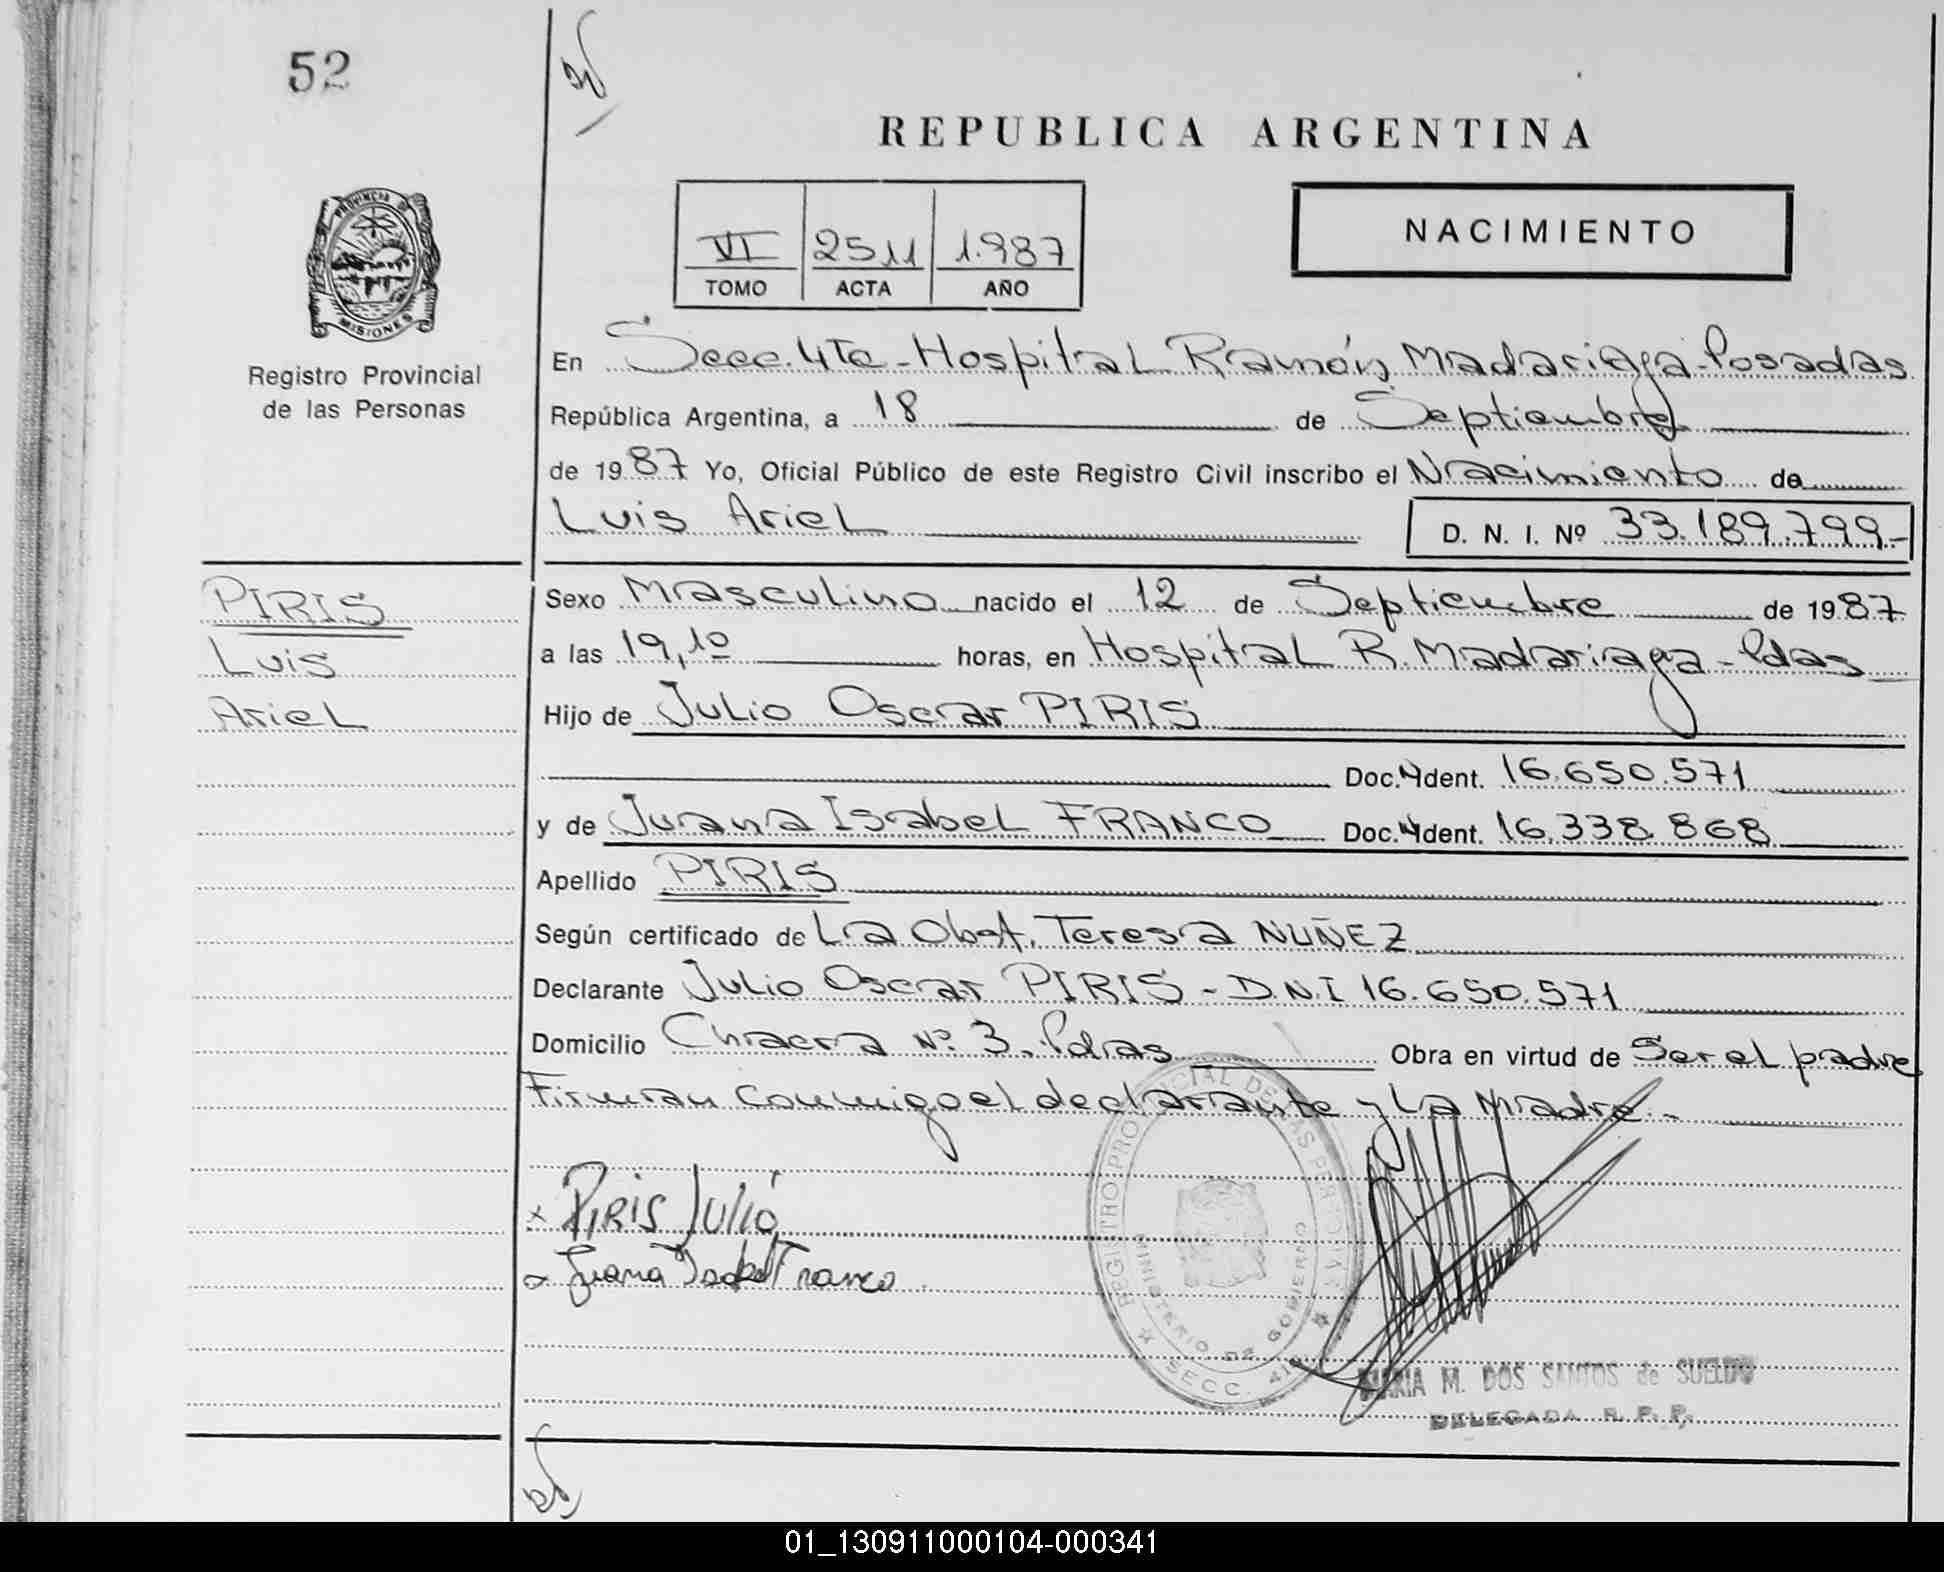 52
REPUBLICA ARGENTINA
VI 2511 1.987
TOMO ACTA AÑO
NACIMIENTO
PROVINCIA DE
MISIONES
Registro Provincial
de las Personas
En Secc. 4Ta - Hospital Ramón Madariaga - Posadas
República Argentina, a 18 de Septiembre
de 1987 Yo, Oficial Público de este Registro Civil inscribo el Nacimiento de
Luis Ariel
D. N. I. Nº 33.189.799-
PIRIS
Luis
Ariel
Sexo Masculino nacido el 12 de Septiembre de 1987
a las 19,10 horas, en Hospital R. Madariaga - Pdas
Hijo de Julio Oscar PIRIS
Doc. Ident. 16.650.571
y de Juana Isabel FRANCO Doc. Ident. 16.338.868
Apellido PIRIS
Según certificado de La Obst. Teresa NUÑEZ
Declarante Julio Oscar PIRIS - D.N.I 16.650.571
Domicilio Chacra Nº 3. Pdas Obra en virtud de Ser el padre
Firman conmigo el declarante y La Madre.-
x PIRIS Julio
x Juana Isabel Franco
REGISTRO PROVINCIAL DE LAS PERSONAS
MINISTERIO DE GOBIERNO
SECC. 4ta
MARIA M. DOS SANTOS de SUELDO
DELEGADA R. P. P.
01_130911000104-000341